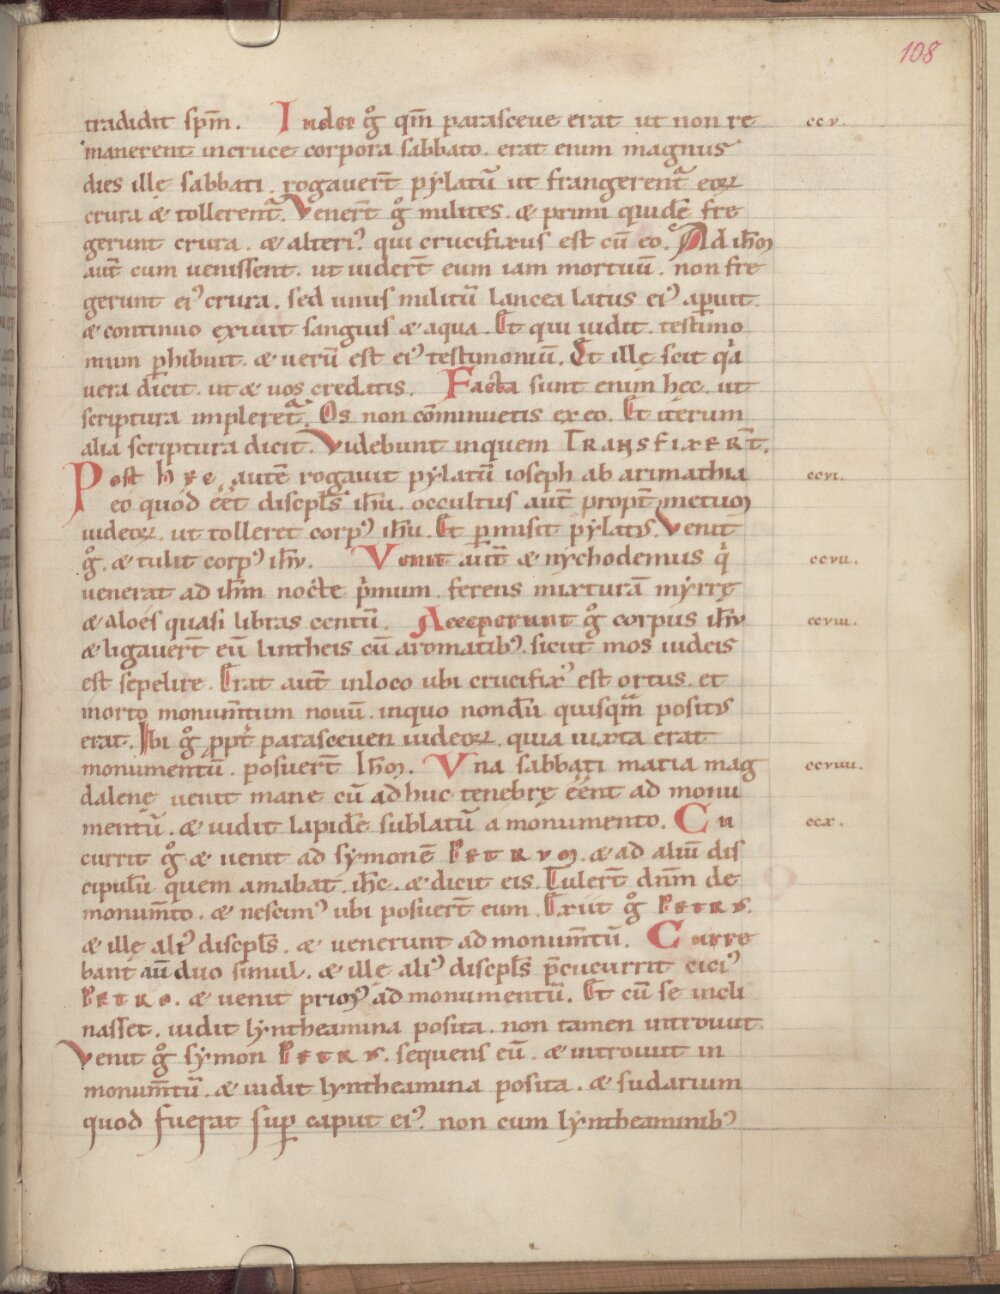 108
tradidit spm̄. Iudei g̊ qm̄ parasceue erat ut non re ccv.
manerent in cruce corpora sabbato. erat enim magnus
dies ille sabbati. rogauer̄t pylatū ut frangerent᷑ eoꝝ
crura & tollerent᷑. Vener̄t g̊ milites. & primi quidē fre
gerunt crura. & alteri᷒ qui crucifixus est cū eo. Ad ihm̄
aut̄ cum uenissent. ut uider̄t eum iam mortuū. non fre
gerunt ei᷒ crura. sed unus militū lancea latus ei᷒ aꝑuit.
& continuo exiuit sanguis & aqua. Et qui uidit. testimo
nium ꝑhibuit. & uerū est ei᷒ testimoniū. Et ille scit qͥa
uera dicit. ut & uos credatis. Facta sunt enim hec. ut
scriptura impleret᷑. Os non cōminuetis ex eo. Et iterum
alia scriptura dicit. Videbunt in quem TRANSFIXER̄T.
Post hec autē rogauit pylatū ioseph ab arimathia ccvi.
eo quod eēt discipls̄ ihu. occultus aut̄ propt̄ metum
iudeoꝝ. ut tolleret corp᷒ ihu. Et ꝑmisit pylat᷒. Venit
g̊. & tulit corp᷒ ihu. Venit aut̄ & nychodemus qͥ ccvii.
uenerat ad ihm̄ nocte pͥmum. ferens mixturā myrrę
& aloes quasi libras centū. Acceperunt g̊ corpus ihu ccviii.
& ligauer̄t eū lintheis cū aromatib᷒. sicut mos iudeis
est sepelire. Erat aut̄ in loco ubi crucifix᷒ est ortus. et
in orto monum̄tum nouū. in quo nondū quisqm̄ posit᷒
erat. Ibi g̊ ꝓpt̄ parasceuen iudeoꝝ. quia iuxta erat
monumentū. posuer̄t Ihm̄. Vna sabbati maria mag ccviiii.
dalene uenit mane cū adhuc tenebrę eēnt ad monu
mentū. & uidit lapidē sublatū a monumento. Cu ccx.
currit g̊ & uenit ad symonē PETRVM. & ad aliū dis
cipulū quem amabat. ihc. & dicit eis. Tuler̄t dnm̄ de
monum̄to. & nescim᷒ ubi posuer̄t eum. Exiit g̊ PETRVS.
& ille ali᷒ discipls̄. & uenerunt ad monum̄tū. Curre
bant aū duo simul. & ille ali᷒ discipls̄ p̄cucurrit cici᷒
PETRO. & uenit prior᷒ ad monumentū. Et cū se incli
nasset. uidit lyntheamina posita. non tamen introiuit.
Venit g̊ symon PETRVS. sequens eū. & introiuit in
monum̄tū. & uidit lyntheamina posita. & sudarium
quod fuerat suꝑ caput ei᷒. non cum lyntheaminib᷒